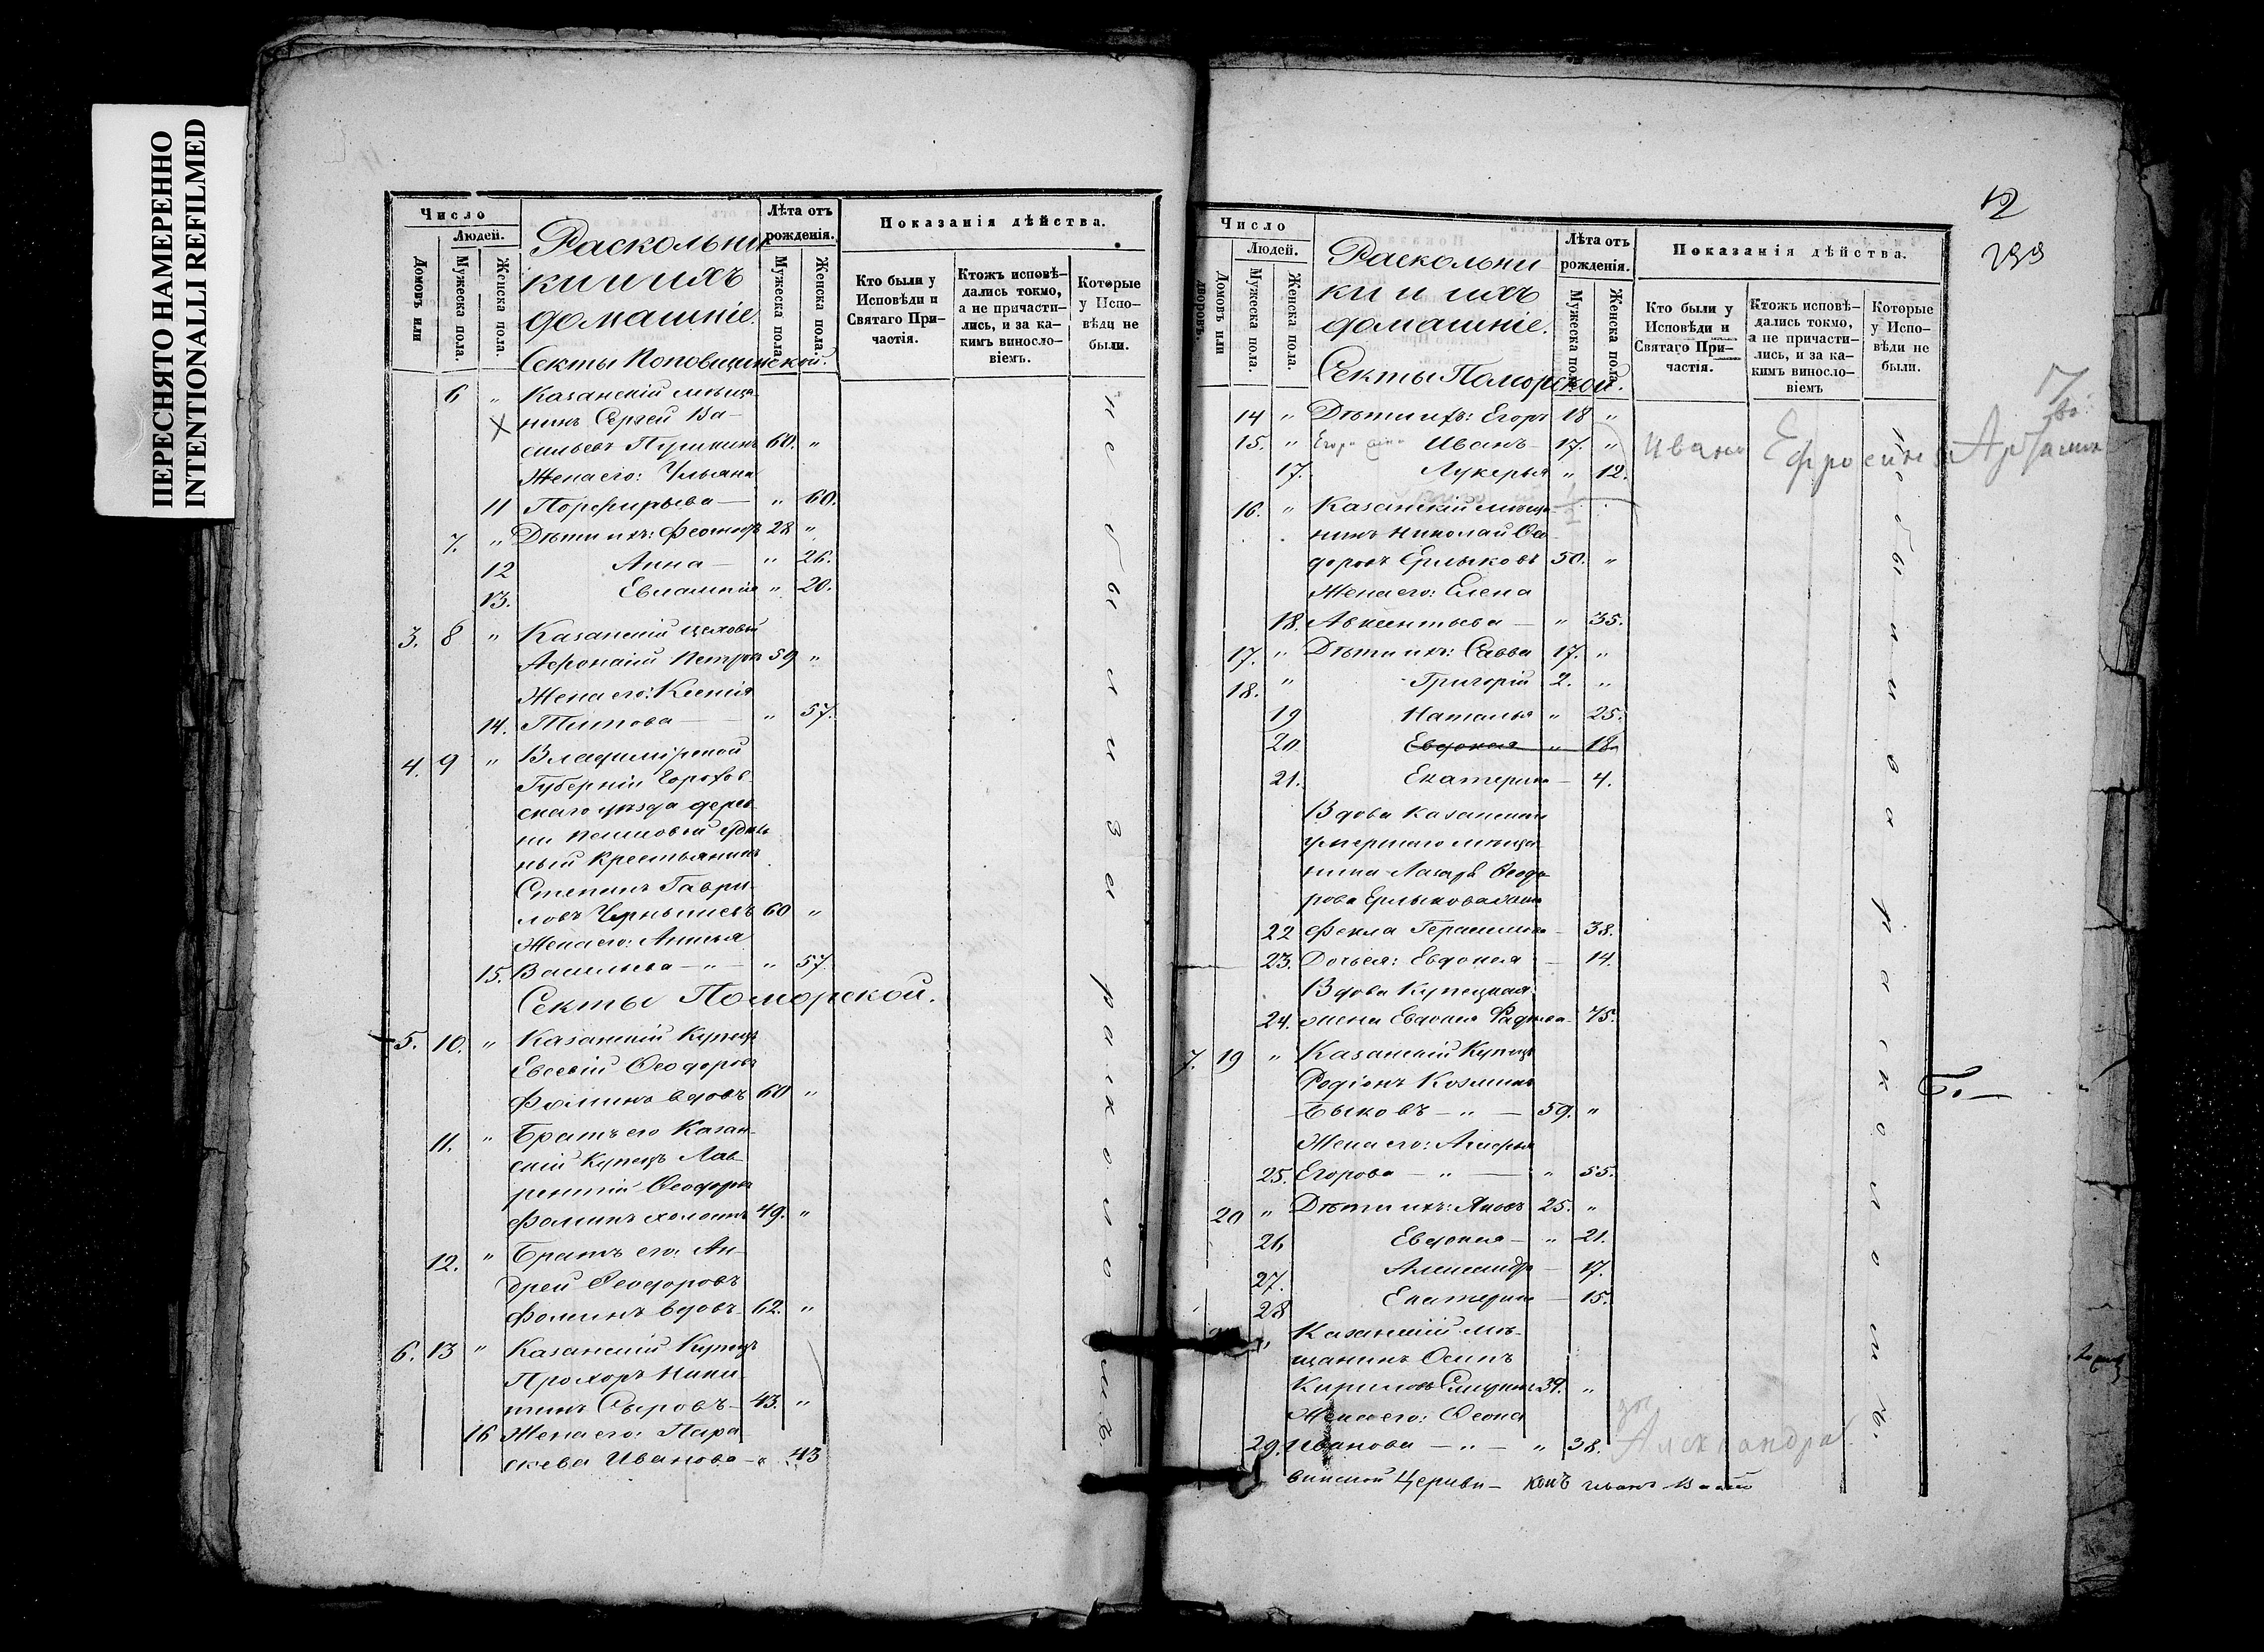 ПЕРЕСНЯТО НАМЕРЕННО
INTENTIONALLI REFILMED
Число
Людей.
Домовъ или
Мужеска пола.
Женска пола.
Раскольни
ки и ихъ
домашніе.
Лѣта отъ
рожденія.
Мужеска пола.
Женска пола.
Показанія дѣйства.
Кто были у
Исповѣди и
Святаго При-
частія.
Ктожъ исповѣ-
дались токмо,
а не причасти-
лись, и за ка-
кимъ винословіемъ.
Которые
у Испо-
вѣди не
были.
Секты Поповщинской.
6 " Казанскій мѣща-
нинъ Сергей Ва-
сильевъ 60. "
Жена его: Ульяна
11 Порфирьева — " 60.
7. " Дѣти ихъ: 28 "
12 Анна — " 26.
13. Евлампія " 20.
3. 8 " Казанскій цеховый
Афонасій Петровъ 59 "
Жена его: Ксенія
14. Титова — " 57.
4. 9 " Владимірской
Губерніи Горохов-
скаго уѣзда дерев-
ни
ный Крестьянинъ
Степанъ Гаври-
ловъ Чернышевъ 60 "
Жена его: Анисья
15. Васильева — " — " 57.
Секты Поморской.
5. 10. " Казанскій Купецъ
Евсевій Ѳеодоровъ
Фоминъ вдовъ 60 "
11. " Братъ его Казан-
скій Купецъ Лав-
рентій Ѳеодоровъ
Фоминъ холостъ 49. "
12. " Братъ его: Ан-
дрей Ѳеодоровъ
Фоминъ вдовъ 62. "
6. 13 " Казанскій Купецъ
Прохоръ Ники-
тинъ Сыровъ — 43. "
16 Жена его: Пара
скева Иванова — " 43
не были за расколомъ.
12
Число
Людей.
Домовъ или
дворовъ.
Мужеска пола.
Женска пола.
Раскольни
ки и ихъ
домашніе.
Лѣта отъ
рожденія.
Мужеска пола.
Женска пола.
Показанія дѣйства.
Кто были у
Исповѣди и
Святаго При-
частія.
Ктожъ исповѣ-
дались токмо,
а не причасти-
лись, и за ка-
кимъ винословіемъ
Которые
у Испо-
вѣди не
были.
Секты Поморской.
14 " Дѣти ихъ: Егоръ 18 "
15. " Иванъ 17. "
17. Лукерья " 12.
16. " Казанскій мѣща-
нинъ Николай Ѳе
доровъ Ерлыковъ 50. "
Жена его: Елена
18. Авксентьева — " 35.
17. " Дѣти ихъ: Савва 17. "
18. " Григорій 2. "
19 Наталья " 25.
20 Евдокия " 18.
21. Екатерина — 4.
Вдова Казанскаго
умершаго мѣща-
нина Лазаря Ѳеодо-
рова Ерлыкова жена
22 Фекла Герасимова — 38.
23. Дочь ея: Евдокея — 14.
Вдова Купецкая
24. жена Евдокея — 75.
7. 19 " Казанскій Купецъ
Родіонъ Козминъ
Быковъ — " — 59. "
Жена его:
25. Егорова — " — " 55.
20 " Дѣти ихъ: Яковъ 25. "
26 Евдокея — " 21.
27. Александра — 17.
28 Екатерина — 15.
Казанскій мѣ-
щанинъ Осипъ
Кириловъ 39. "
Жена его: Ѳеона
29. Иванова — " — " 38.
Александра
не были за расколомъ.